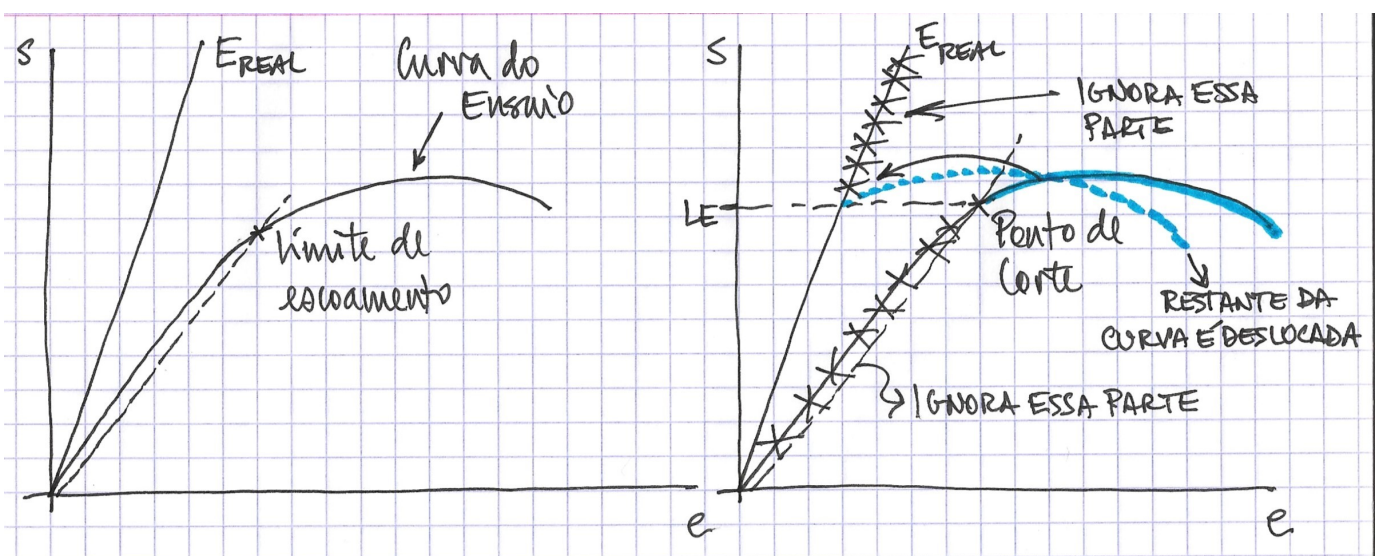 S
E REAL
Curva do
Ensaio
limite de
escoamento
e
S
E REAL
IGNORA ESSA
PARTE
LE
Ponto de
Corte
RESTANTE DA
CURVA É DESLOCADA
IGNORA ESSA PARTE
e